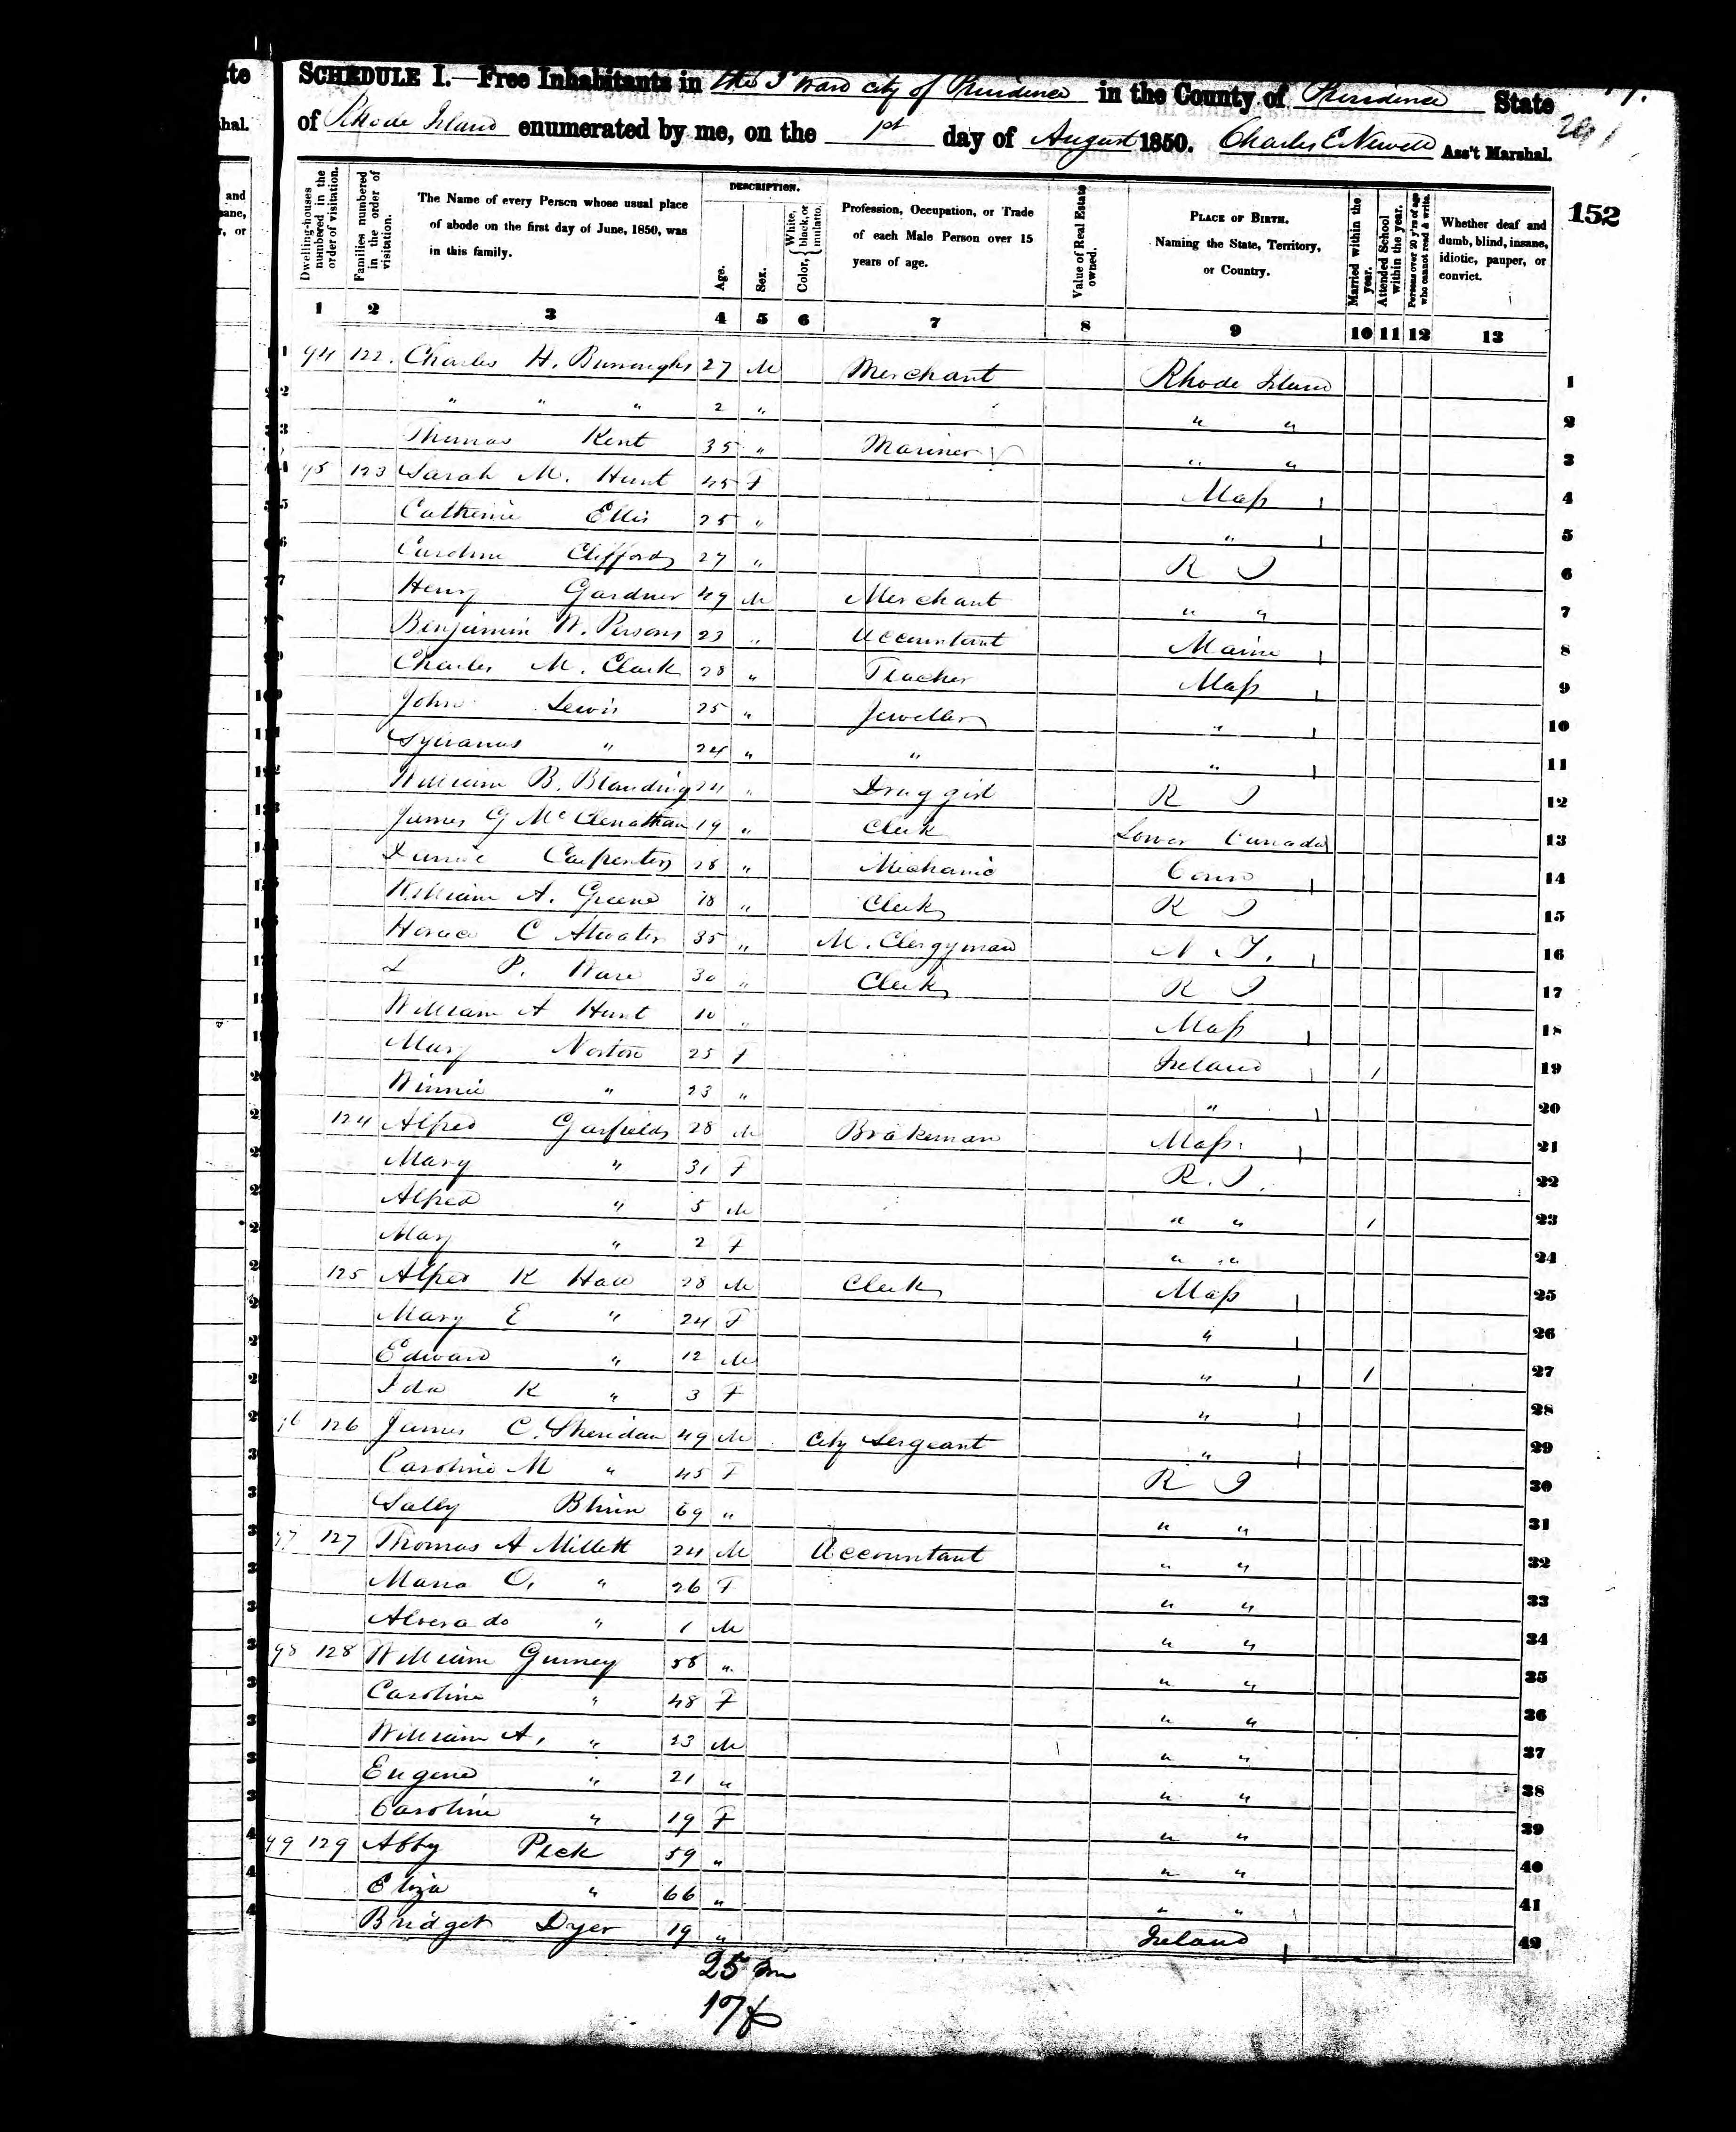 SCHEDULE I.—Free Inhabitants in the Ward city of Providence in the County of Providence State
of Rhode Island enumerated by me, on the 1st day of August 1850. Charles E Newell Ass't Marshal.
152
Dwelling-houses numbered in the order of visitation.
Families numbered in the order of visitation.
The Name of every Person whose usual place of abode on the first day of June, 1850, was in this family.
DESCRIPTION.
Age.
Sex.
Color, { White, black, or mulatto.
Profession, Occupation, or Trade of each Male Person over 15 years of age.
Value of Real Estate owned.
PLACE OF BIRTH. Naming the State, Territory, or Country.
Married within the year.
Attended School within the year.
Persons over 20 y'rs of age who cannot read & write.
Whether deaf and dumb, blind, insane, idiotic, pauper, or convict.
1 2 3 4 5 6 7 8 9 10 11 12 13
94 122. Charles H. Burroughs 27 M Merchant Rhode Island 1
" " " 2 " " " 2
Thomas Kent 35 " Mariner " " 3
95 123 Sarah M. Hunt 45 F Mass 4
Catherine Ellis 25 " " 5
Caroline Clifford 27 " R I 6
Henry Gardner 49 M Merchant " " 7
Benjamin W. Persons 23 " Accountant Maine 8
Charles M. Clark 28 " Teacher Mass 9
John Lewis 25 " Jeweller " 10
Sylvanus " 24 " " " 11
William B. Blanding 24 " Druggist R I 12
James G McClenathan 19 " Clerk Lower Canada 13
Carpenter 28 " Mechanic Conn 14
William A. Greene 18 " Clerk R I 15
Horace C Atwater 35 " M. Clergyman N. Y. 16
P. Ware 30 " Clerk R I 17
William A Hunt 10 " Mass 18
Mary Norton 25 F Ireland 1 19
Winnie " 23 " " 20
124 Alfred Garfield 28 M Brakeman Mass. 21
Mary " 31 F R. I. 22
Alfred " 5 M " " 1 23
Mary " 2 F " " 24
125 Alfred K 28 M Clerk Mass 25
Mary E " 24 F " 26
Edward " 12 M " 1 27
Ida K " 3 F " 28
96 126 James C. Sheridan 49 M City Sergeant " 29
Caroline M " 45 F R I 30
Sally Blinn 69 " " " 31
97 127 Thomas A Millett 24 M Accountant " " 32
Maria O. " 26 F " " 33
Alverado " 1 M " " 34
98 128 William Gurney 58 " " " 35
Caroline " 48 F " " 36
William A. " 23 M " " 37
Eugene " 21 " " " 38
Caroline " 19 F " " 39
99 129 Abby Peck 59 " " " 40
Eliza " 66 " " " 41
Bridget Dyer 19 " Ireland 42
25 m
17 f